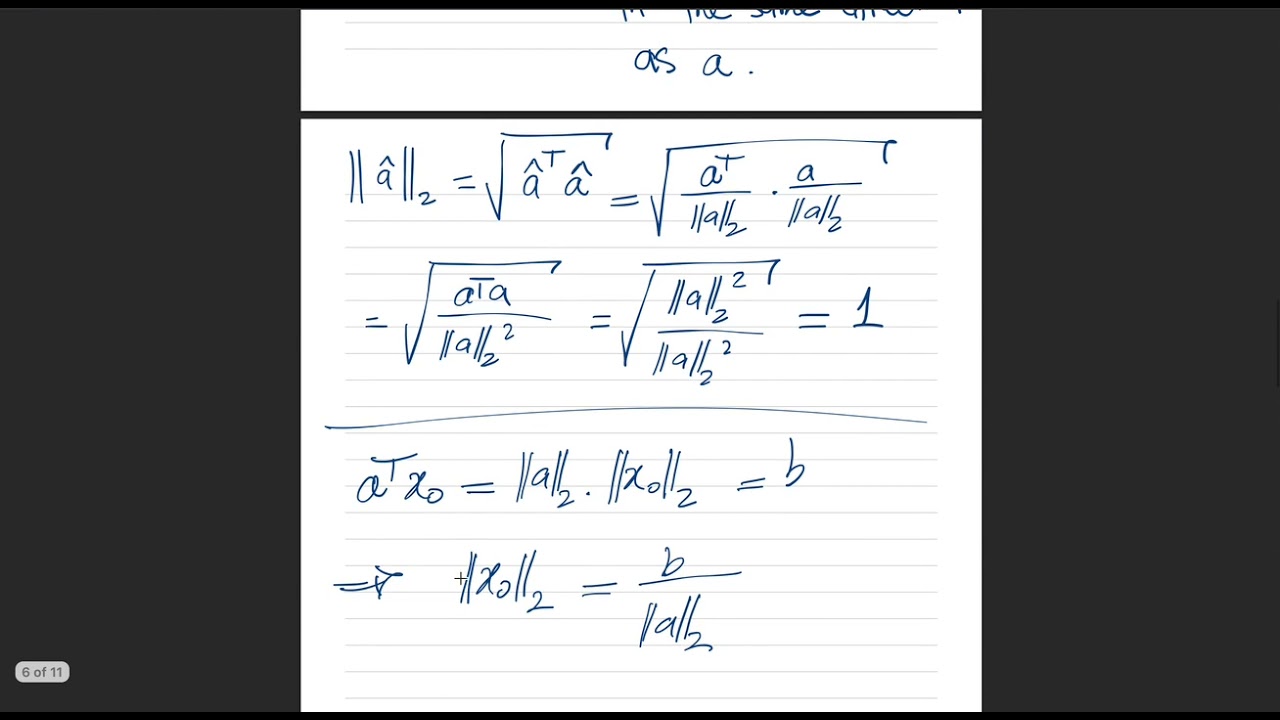 the same
as a.
‖â‖₂ = √(âᵀ â) = √(aᵀ/‖a‖₂ · a/‖a‖₂)
= √(aᵀa/‖a‖₂²) = √(‖a‖₂²/‖a‖₂²) = 1
aᵀx₀ = ‖a‖₂ · ‖x₀‖₂ = b
⇒ ‖x₀‖₂ = b/‖a‖₂
6 of 11